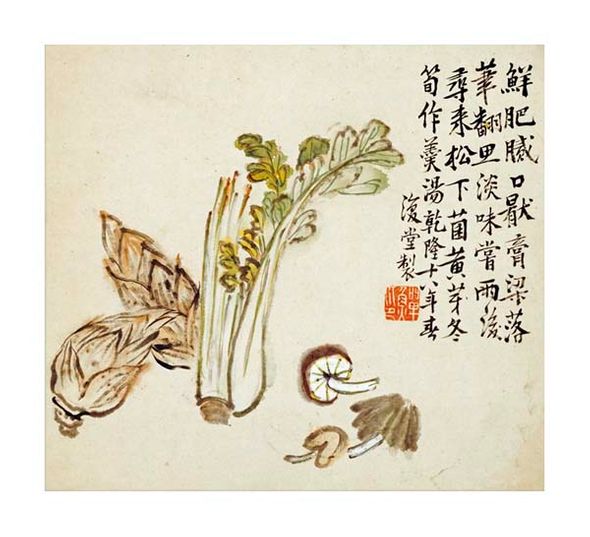 鮮肥膩口厭膏粱落
華翻思淡味嘗雨後
尋来松下菌黄芽冬
筍作羹湯乾隆十八年春
復堂製